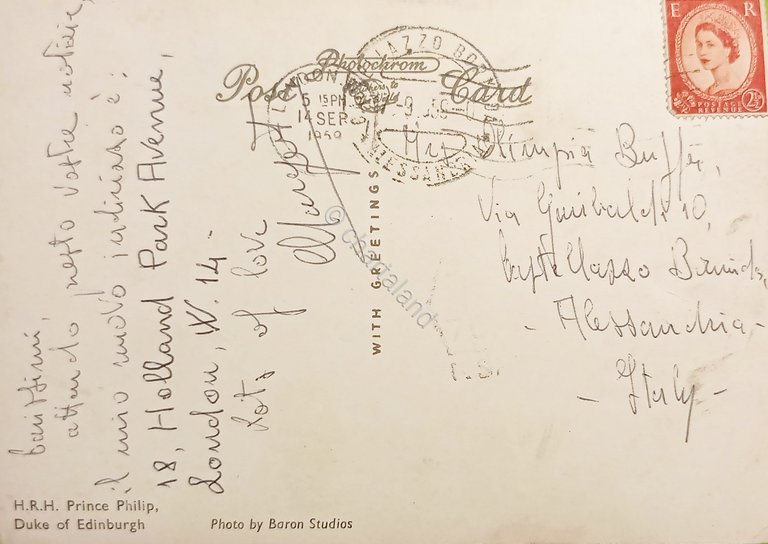 Photochrom
Post Card
LONDON
5 15 PM
14 SEP
1959
E R
POSTAGE
REVENUE
2½
Carissimi,
attendo presto vostre notizie,
il mio nuovo indirizzo è:
18, Holland Park Avenue,
London, W. 14 -
Lots of love
Margot
WITH GREETINGS
Olimpia
Via Garibaldi 10,
Castellazzo Bormida,
- Alessandria -
- Italy -
© chagaland
H.R.H. Prince Philip,
Duke of Edinburgh
Photo by Baron Studios